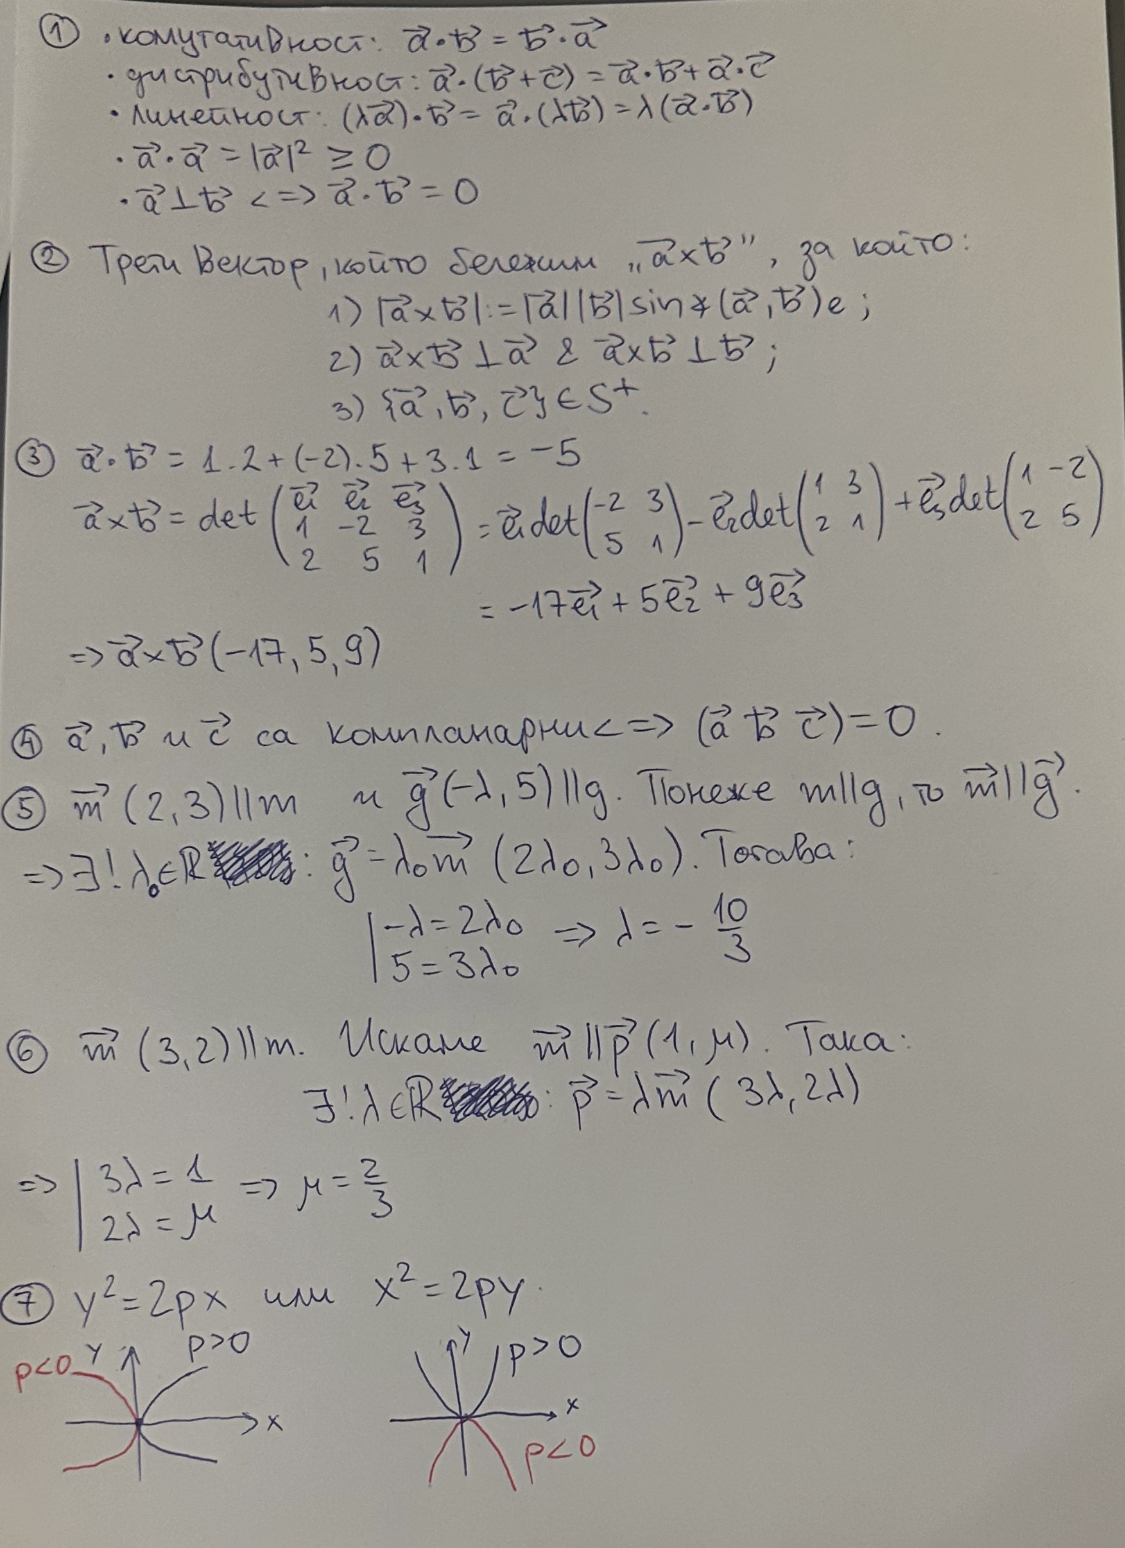 ① • комутативност: a⃗·b⃗ = b⃗·a⃗
• дистрибутивност: a⃗·(b⃗+c⃗) = a⃗·b⃗+a⃗·c⃗
• линейност: (λa⃗)·b⃗ = a⃗·(λb⃗) = λ(a⃗·b⃗)
• a⃗·a⃗ = |a⃗|² ≥ 0
• a⃗⊥b⃗ <=> a⃗·b⃗ = 0
② Трети вектор, който бележим „a⃗×b⃗", за който:
1) |a⃗×b⃗| := |a⃗||b⃗|sin∢(a⃗,b⃗)e;
2) a⃗×b⃗⊥a⃗ & a⃗×b⃗⊥b⃗;
3) {a⃗,b⃗,c⃗}∈S⁺.
③ a⃗·b⃗ = 1.2+(-2).5+3.1 = -5
a⃗×b⃗ = det (e⃗₁ e⃗₂ e⃗₃ 1 -2 3 2 5 1) = e⃗₁det(-2 3 5 1) - e⃗₂det(1 3 2 1) + e⃗₃det(1 -2 2 5)
= -17e⃗₁+5e⃗₂+9e⃗₃
=> a⃗×b⃗(-17,5,9)
④ a⃗,b⃗ и c⃗ са компланарни <=> (a⃗ b⃗ c⃗)=0.
⑤ m⃗(2,3)||m и g⃗(-λ,5)||g. Понеже m||g, то m⃗||g⃗.
=> ∃!λ₀∈ℝ : g⃗=λ₀m⃗ (2λ₀,3λ₀). Тогава:
-λ=2λ₀ => λ = -10/3
5=3λ₀
⑥ m⃗(3,2)||m. Искаме m⃗||p⃗(1,μ). Така:
∃!λ∈ℝ : p⃗=λm⃗(3λ,2λ)
=> 3λ=1 => μ=2/3
2λ=μ
⑦ y²=2px или x²=2py.
p<0 y p>0 y p>0
x x
p<0